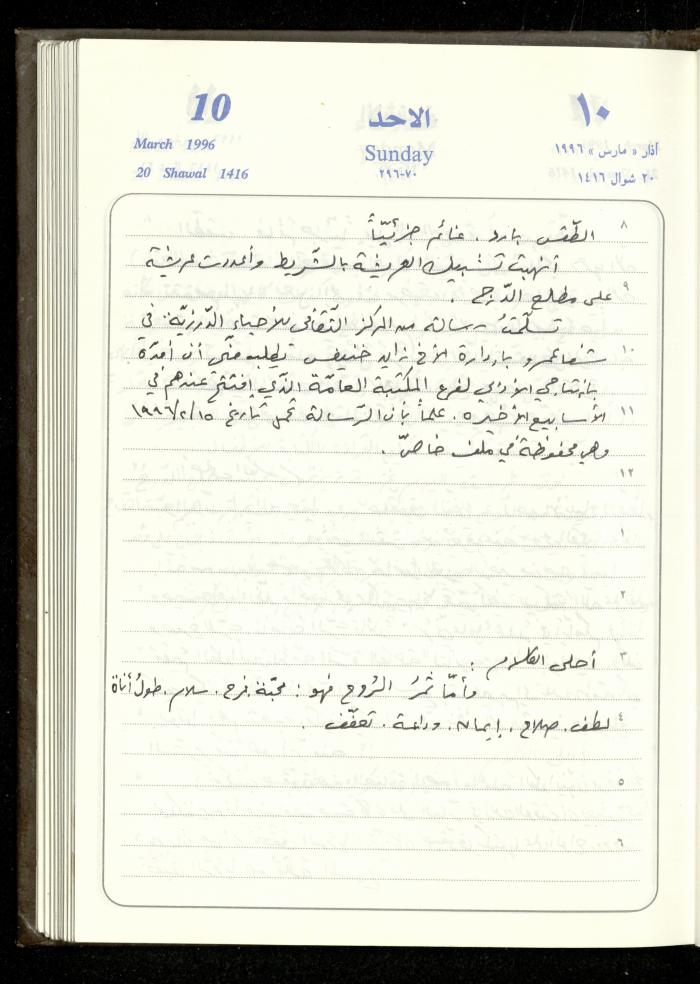 10
الاحد
١٠
March 1996
Sunday
آذار « مارس » ١٩٩٦
20 Shawal 1416
٢٩٦-٧٠
٢٠ شوال ١٤١٦
٨ الطّقس بارد . غائم جزئيّاً
أنهيت تشبيك العريشة بالشّريط وأعددت عريشة
٩ على مطلع الدّرج .
تسلّمتُ رسالة من المركز الثّقافي للأحياء الدّرزيّة في
١٠ شفاعمرو بإدارة الأخ زايد خنيفس تطلب منّي أن أمدّه
بإنتاجي الأدبي لفرع المكتبة العامّة الذّي إفتتح عندهم في
١١ الأسابيع الأخيرة . علماً بأن الرّسالة تحمل تاريخ ١٩٩٦/٢/١٥
وهي محفوظة في ملف خاصّ .
١٢
١
٢
٣ أحلى الكلام :
وأمّا ثمرُ الرُوح فهو : محبّة . فرح . سلام . طولُ أناة
٤ لطف . صلاح . إيمان . وداعة . تعفّف .
٥
٦